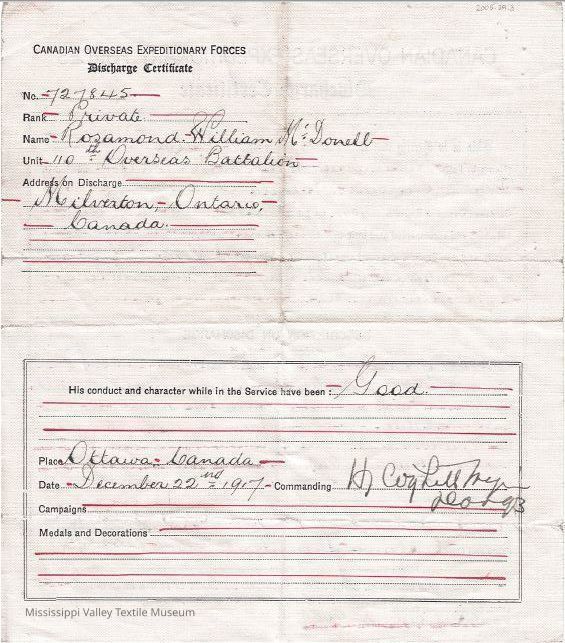 2005.2A.3
CANADIAN OVERSEAS EXPEDITIONARY FORCES
Discharge Certificate
No. 727845
Rank Private
Name Rosamond William McDonell
Unit 110th Overseas Battalion
Address on Discharge
Milverton, Ontario,
Canada.
His conduct and character while in the Service have been : Good.
Place Ottawa Canada
Date December 22nd 1917 Commanding
Campaigns
Medals and Decorations
Mississippi Valley Textile Museum